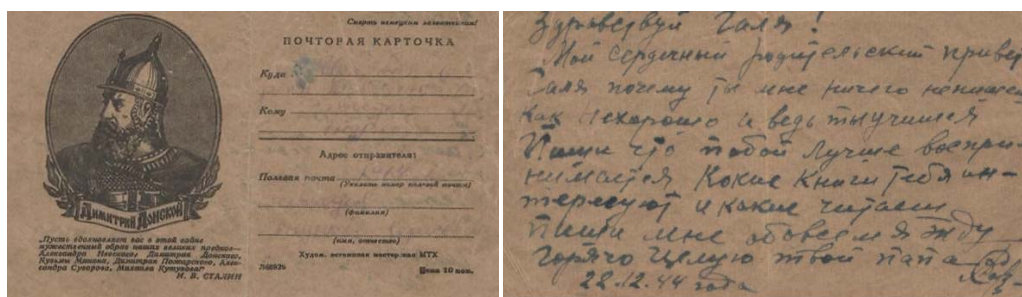 Смерть немецким захватчикам!
ПОЧТОВАЯ КАРТОЧКА
Куда
Кому
Адрес отправителя:
Полевая почта
(Указать номер полевой почты)
(фамилия)
(имя, отчество)
Худож. эстампная мастерская МТХ
Цена 10 коп.
ДИМИТРИЙ ДОНСКОЙ
„Пусть вдохновляет вас в этой войне
мужественный образ наших великих предков—
Александра Невского, Димитрия Донского,
Кузьмы Минина, Димитрия Пожарского, Алек-
сандра Суворова, Михаила Кутузова!"
И. В. СТАЛИН
Здравствуй Галя!
Мой сердечный родительский привет
Галя почему ты мне ничего непишеш
Как нехорошо и ведь ты учишся
Пиши что тобой лучше воспри-
нимается Какие книги тебя ин-
тересуют и какие читаеш
Пиши мне обовсем я жду
Горячо целую твой папа
22.12.44 года